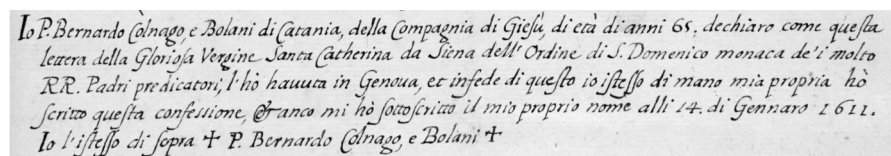 Io P. Bernardo Colnago, e Bolani di Catania, della Compagnia di Giesù, di età di anni 65, dechiaro come questa
lettera della Gloriosa Vergine Santa Catherina da Siena dell'Ordine di S. Domenico monaca de'i molto
RR. Padri predicatori, l'hò havuta in Genova, et infede di questo io istesso di mano mia propria hò
scritto questa confessione, & anco mi hò sottoscritto il mio proprio nome alli 14. di Gennaro 1611.
Io l'istesso di sopra ✝ P. Bernardo Colnago, e Bolani ✝